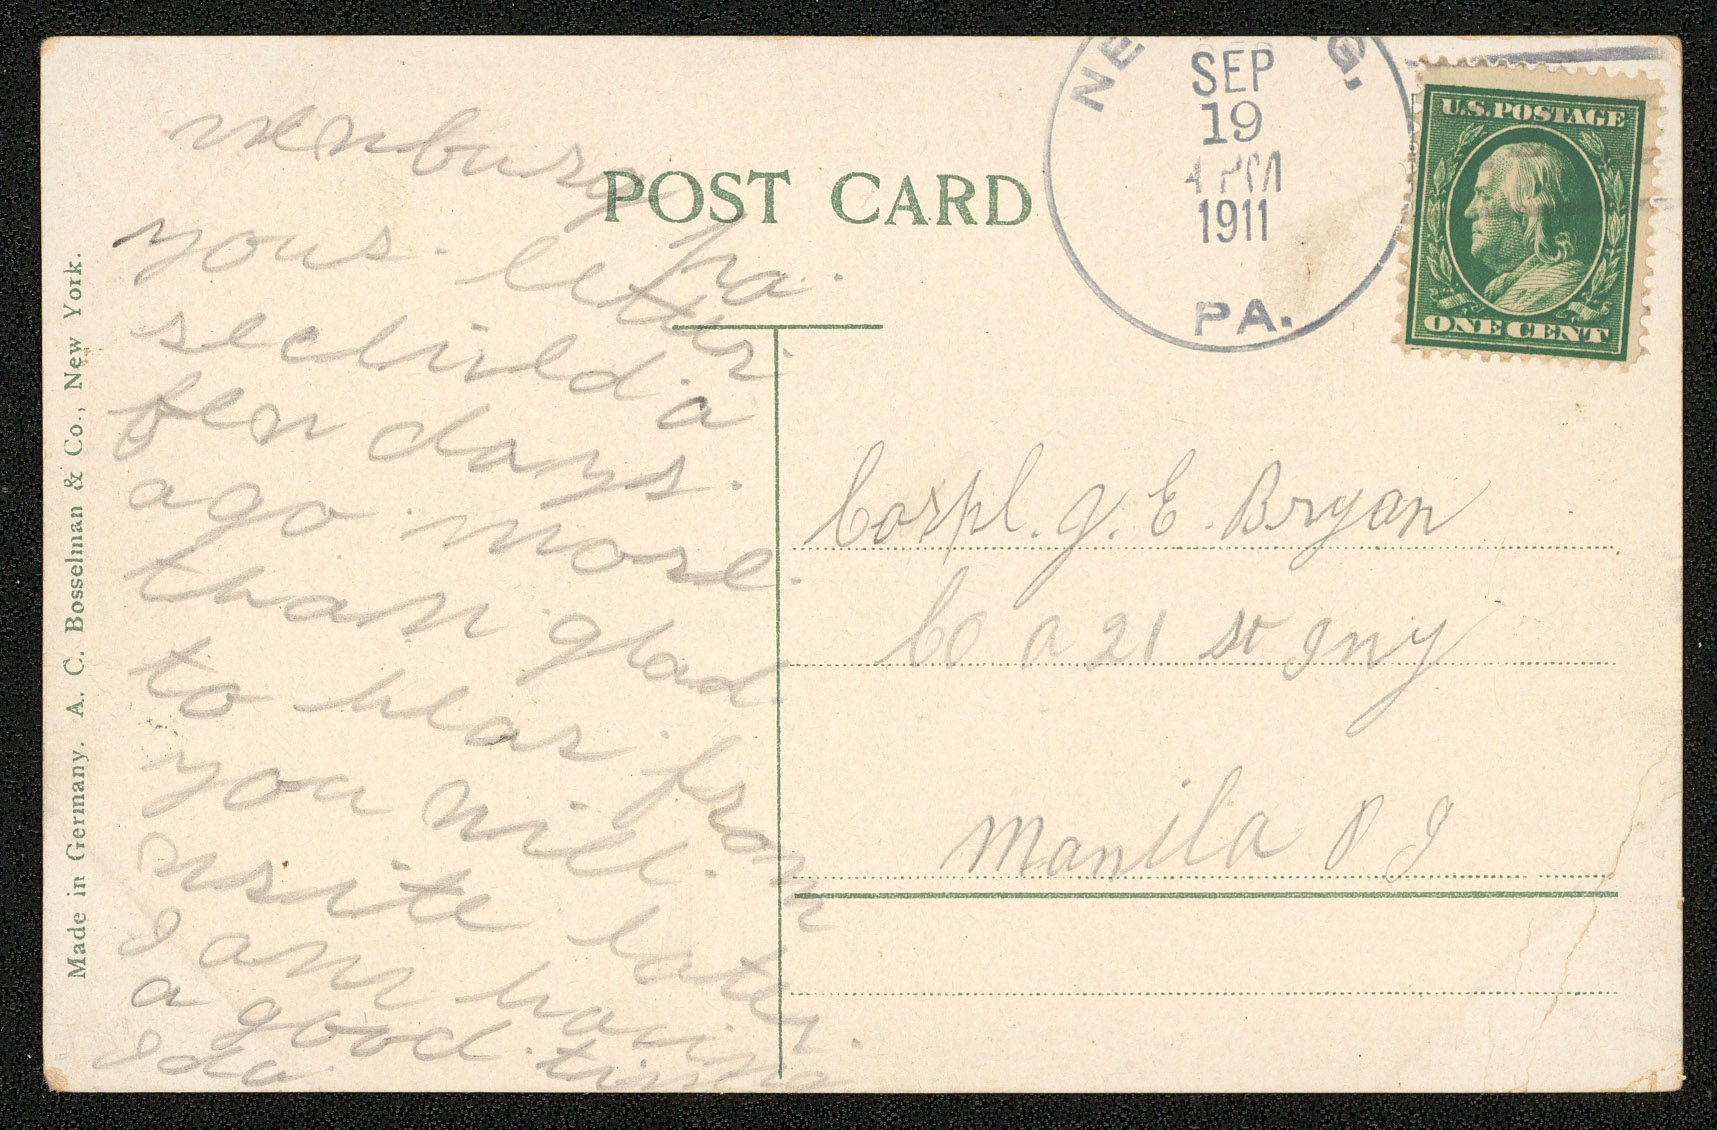 POST CARD
NE G,
SEP
19
4 PM
1911
PA.
U.S. POSTAGE
ONE CENT
Made in Germany. A. C. Bosselman & Co., New York.
pa.
your letter
recived a
few days
ago more
than glad
to hear from
you will
write later.
I am having
a good time
Ida
Corpl. J. E. Bryan
Co A 21 st Iny
Manila P I